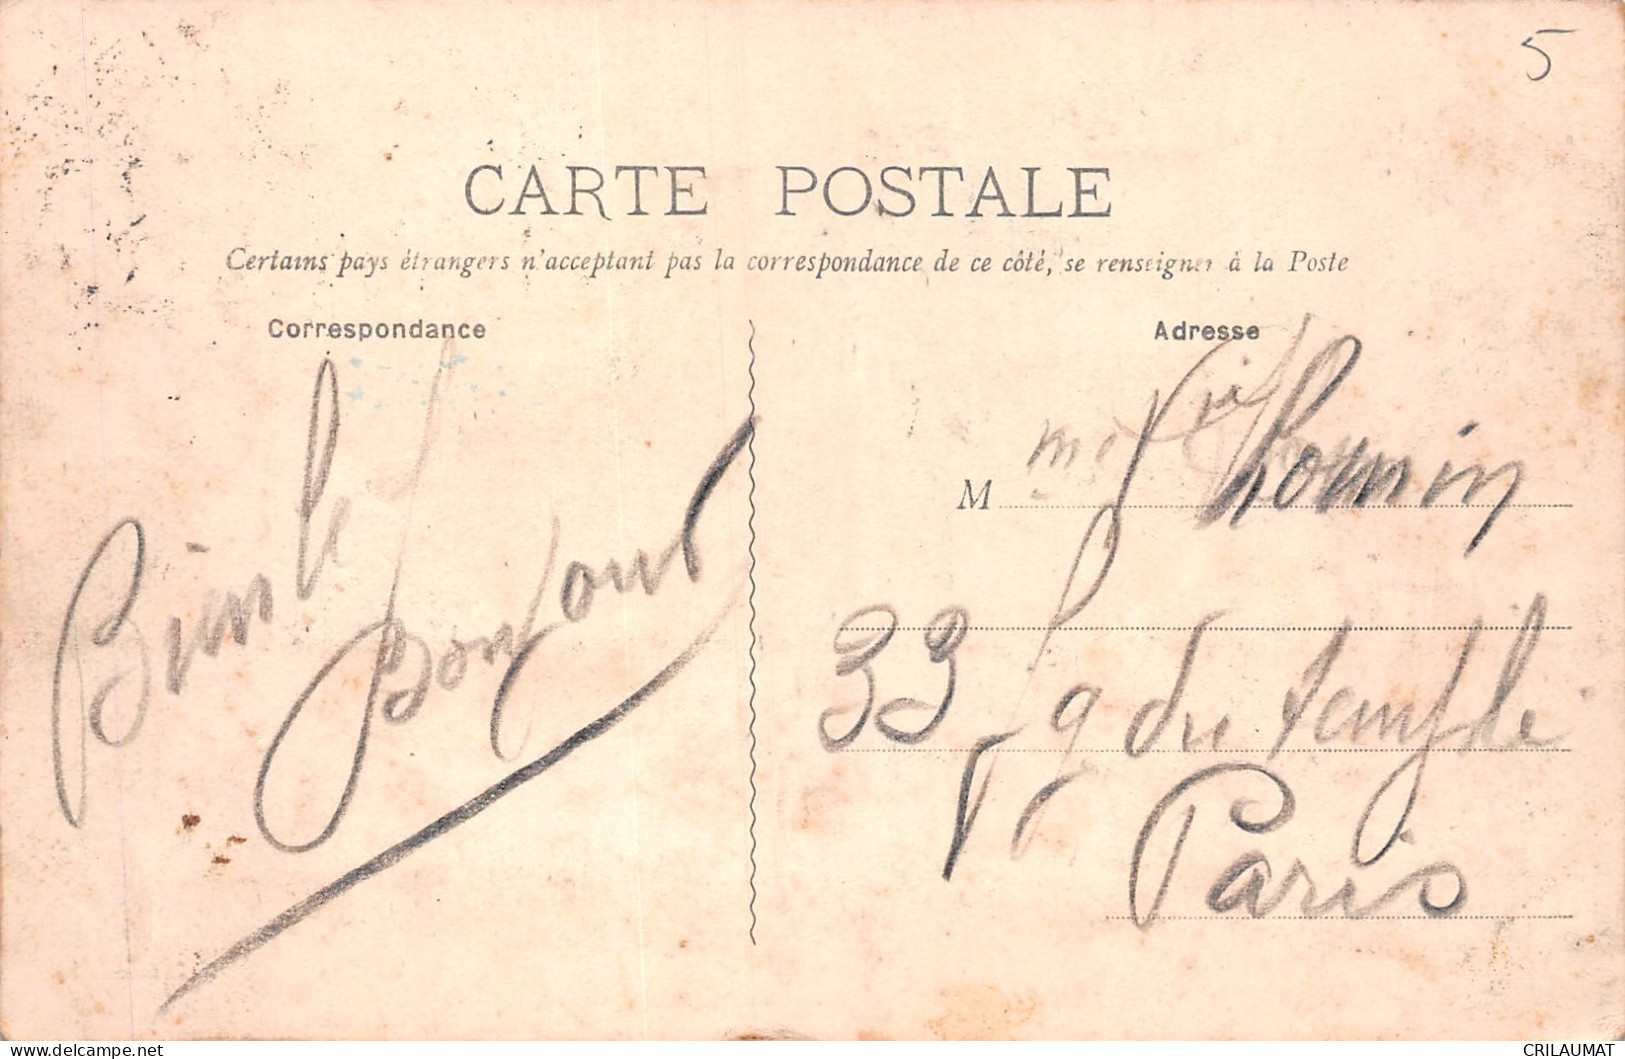 5
CARTE POSTALE
Certains pays étrangers n'acceptant pas la correspondance de ce côté, se renseigner à la Poste
Correspondance
Adresse
Bien le
Bonjour
M
Thomin
33 fg du temple
Paris
CRILAUMAT